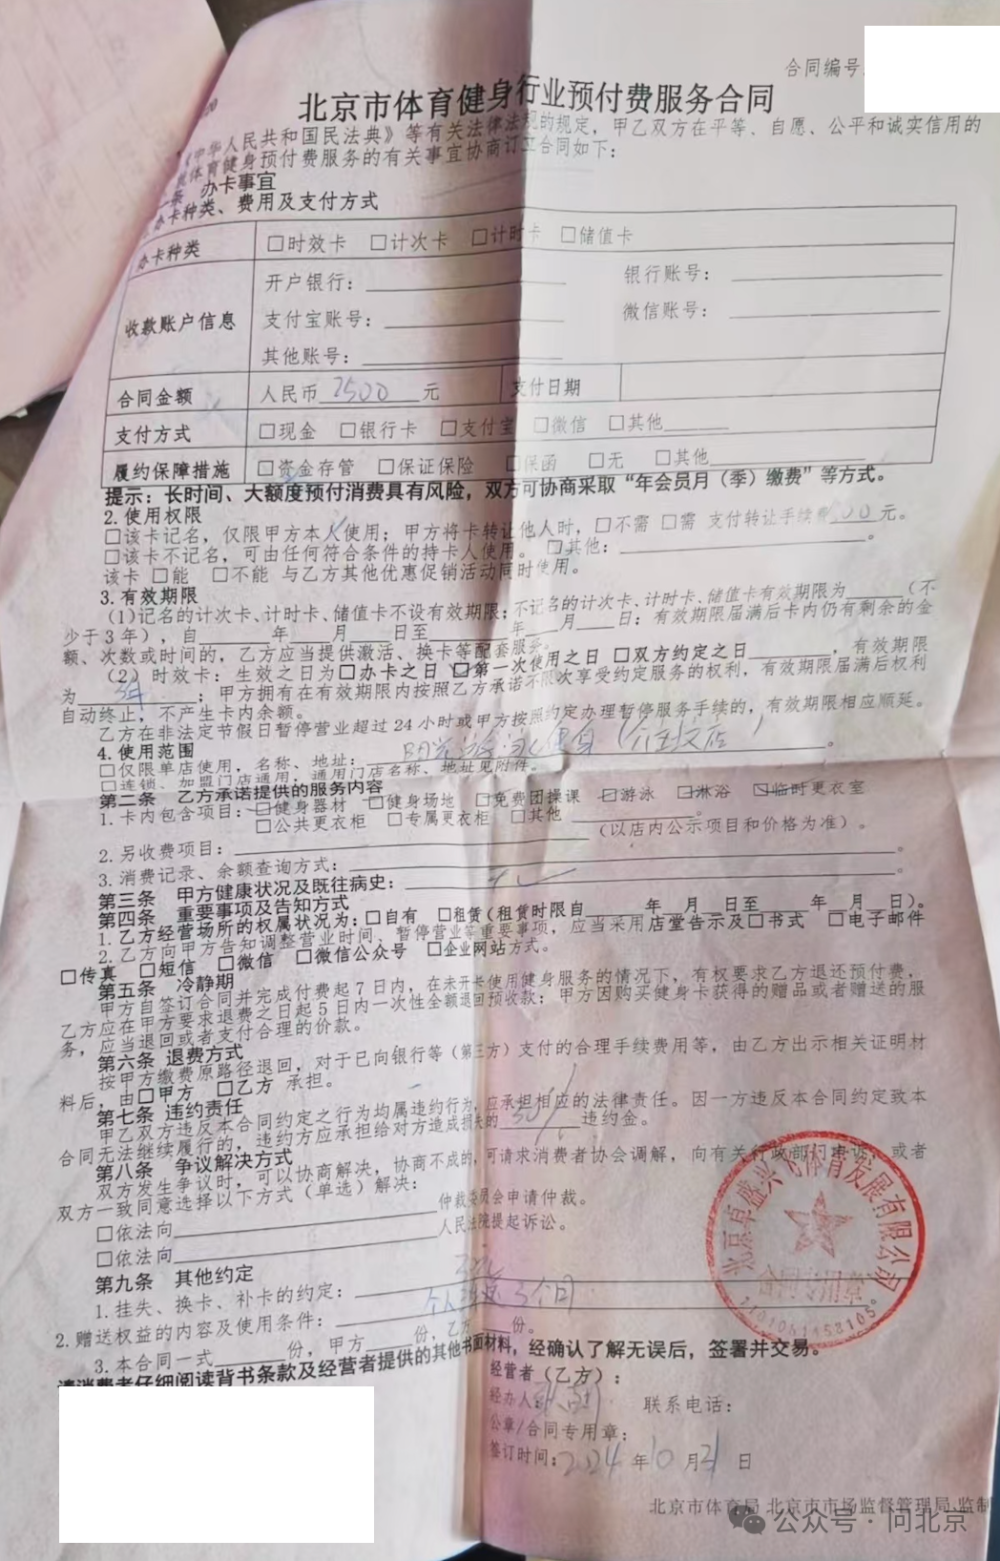 合同编号
北京市体育健身行业预付费服务合同
《中华人民共和国民法典》等有关法律法规的规定，甲乙双方在平等、自愿、公平和诚实信用的
体育健身预付费服务的有关事宜协商订立合同如下：
条 办卡事宜
办卡种类、费用及支付方式
办卡种类 □时效卡 □计次卡 □计时卡 □储值卡
收款账户信息 开户银行： 银行账号：
支付宝账号： 微信账号：
其他账号：
合同金额 人民币 2500 元 支付日期
支付方式 □现金 □银行卡 □支付宝 □微信 □其他
履约保障措施 □资金存管 □保证保险 □保函 □无 □其他
提示：长时间、大额度预付消费具有风险，双方可协商采取“年会员月（季）缴费”等方式。
2.使用权限
□该卡记名，仅限甲方本人使用；甲方将卡转让他人时，□不需 □需 支付转让手续费 元。
□该卡不记名，可由任何符合条件的持卡人使用。 □其他： 。
该卡 □能 □不能 与乙方其他优惠促销活动同时使用。
3.有效期限
(1)记名的计次卡、计时卡、储值卡不设有效期限；不记名的计次卡、计时卡、储值卡有效期限为 （不
少于3年），自 年 月 日至 年 月 日；有效期限届满后卡内仍有剩余的金
额、次数或时间的，乙方应当提供激活、换卡等配套服务。
（2）时效卡：生效之日为□办卡之日 □第一次使用之日 □双方约定之日 ，有效期限
为 ；甲方拥有在有效期限内按照乙方承诺不限次享受约定服务的权利，有效期限届满后权利
自动终止，不产生卡内余额。
乙方在非法定节假日暂停营业超过24小时或甲方按照约定办理暂停服务手续的，有效期限相应顺延。
4.使用范围
□仅限单店使用，名称、地址： 。
□连锁、加盟门店通用，通用门店名称、地址见附件。
第二条 乙方承诺提供的服务内容
1.卡内包含项目：□健身器材 □健身场地 □免费团操课 ☑游泳 ☑淋浴 ☑临时更衣室
□公共更衣柜 □专属更衣柜 □其他 。
（以店内公示项目和价格为准）。
2.另收费项目： 。
3.消费记录、余额查询方式： 。
第三条 甲方健康状况及既往病史：
第四条 重要事项及告知方式
1.乙方经营场所的权属状况为：□自有 □租赁（租赁时限自 年 月 日至 年 月 日）。
2.乙方向甲方告知调整营业时间、暂停营业等重要事项，应当采用店堂告示及□书式 □电子邮件
□传真 □短信 □微信 □微信公众号 □企业网站方式。
第五条 冷静期
甲方自签订合同并完成付费起7日内，在未开卡使用健身服务的情况下，有权要求乙方退还预付费，
乙方应在甲方要求退费之日起5日内一次性全额退回预收款；甲方因购买健身卡获得的赠品或者赠送的服
务，应当退回或者支付合理的价款。
第六条 退费方式
按甲方缴费原路径退回，对于已向银行等（第三方）支付的合理手续费用等，由乙方出示相关证明材
料后，由□甲方 □乙方 承担。
第七条 违约责任
甲乙双方违反本合同约定之行为均属违约行为，应承担相应的法律责任。因一方违反本合同约定致本
合同无法继续履行的，违约方应承担给对方造成损失的 30% 违约金。
第八条 争议解决方式
双方发生争议时，可以协商解决，协商不成的，可请求消费者协会调解，向有关行政部门申诉，或者
双方一致同意选择以下方式（单选）解决：
□依法向 仲裁委员会申请仲裁。
□依法向 人民法院提起诉讼。
第九条 其他约定
1.挂失、换卡、补卡的约定：
2.赠送权益的内容及使用条件： 3个月
3.本合同一式 份，甲方 份，乙方 份。
请消费者仔细阅读背书条款及经营者提供的其他书面材料，经确认了解无误后，签署并交易。
经营者（乙方）：
经办人： 联系电话：
公章/合同专用章：
签订时间：2024年10月31日
北京卓盛兴飞体育发展有限公司
合同专用章
北京市体育局 北京市市场监督管理局 监制
公众号·问北京